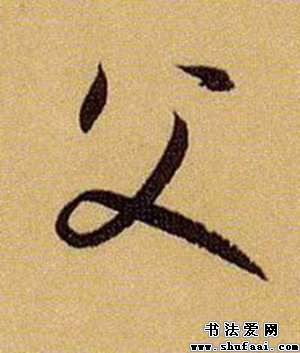 父
书法爱网
www.shufaai.com